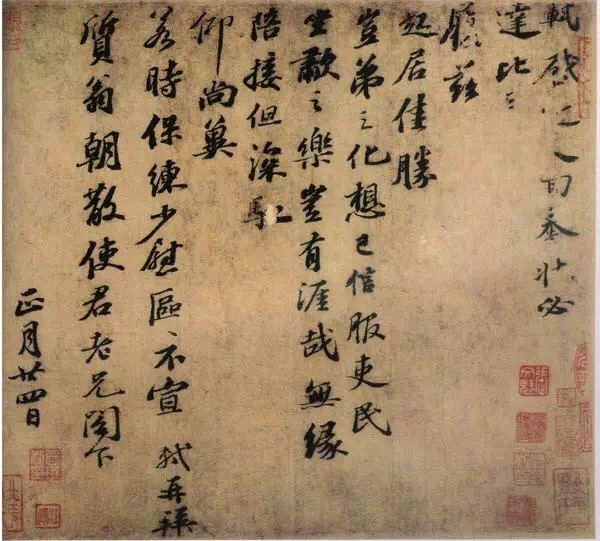 軾啟近人回奉狀必
達比日
履茲
起居佳勝
豈弟之化想已信服吏民
坐嘯之樂豈有涯哉無緣
陪接但深馳
仰尚冀
若時保練少慰區〻不宣 軾再拜
質翁朝散使君老兄閤下
正月廿四日